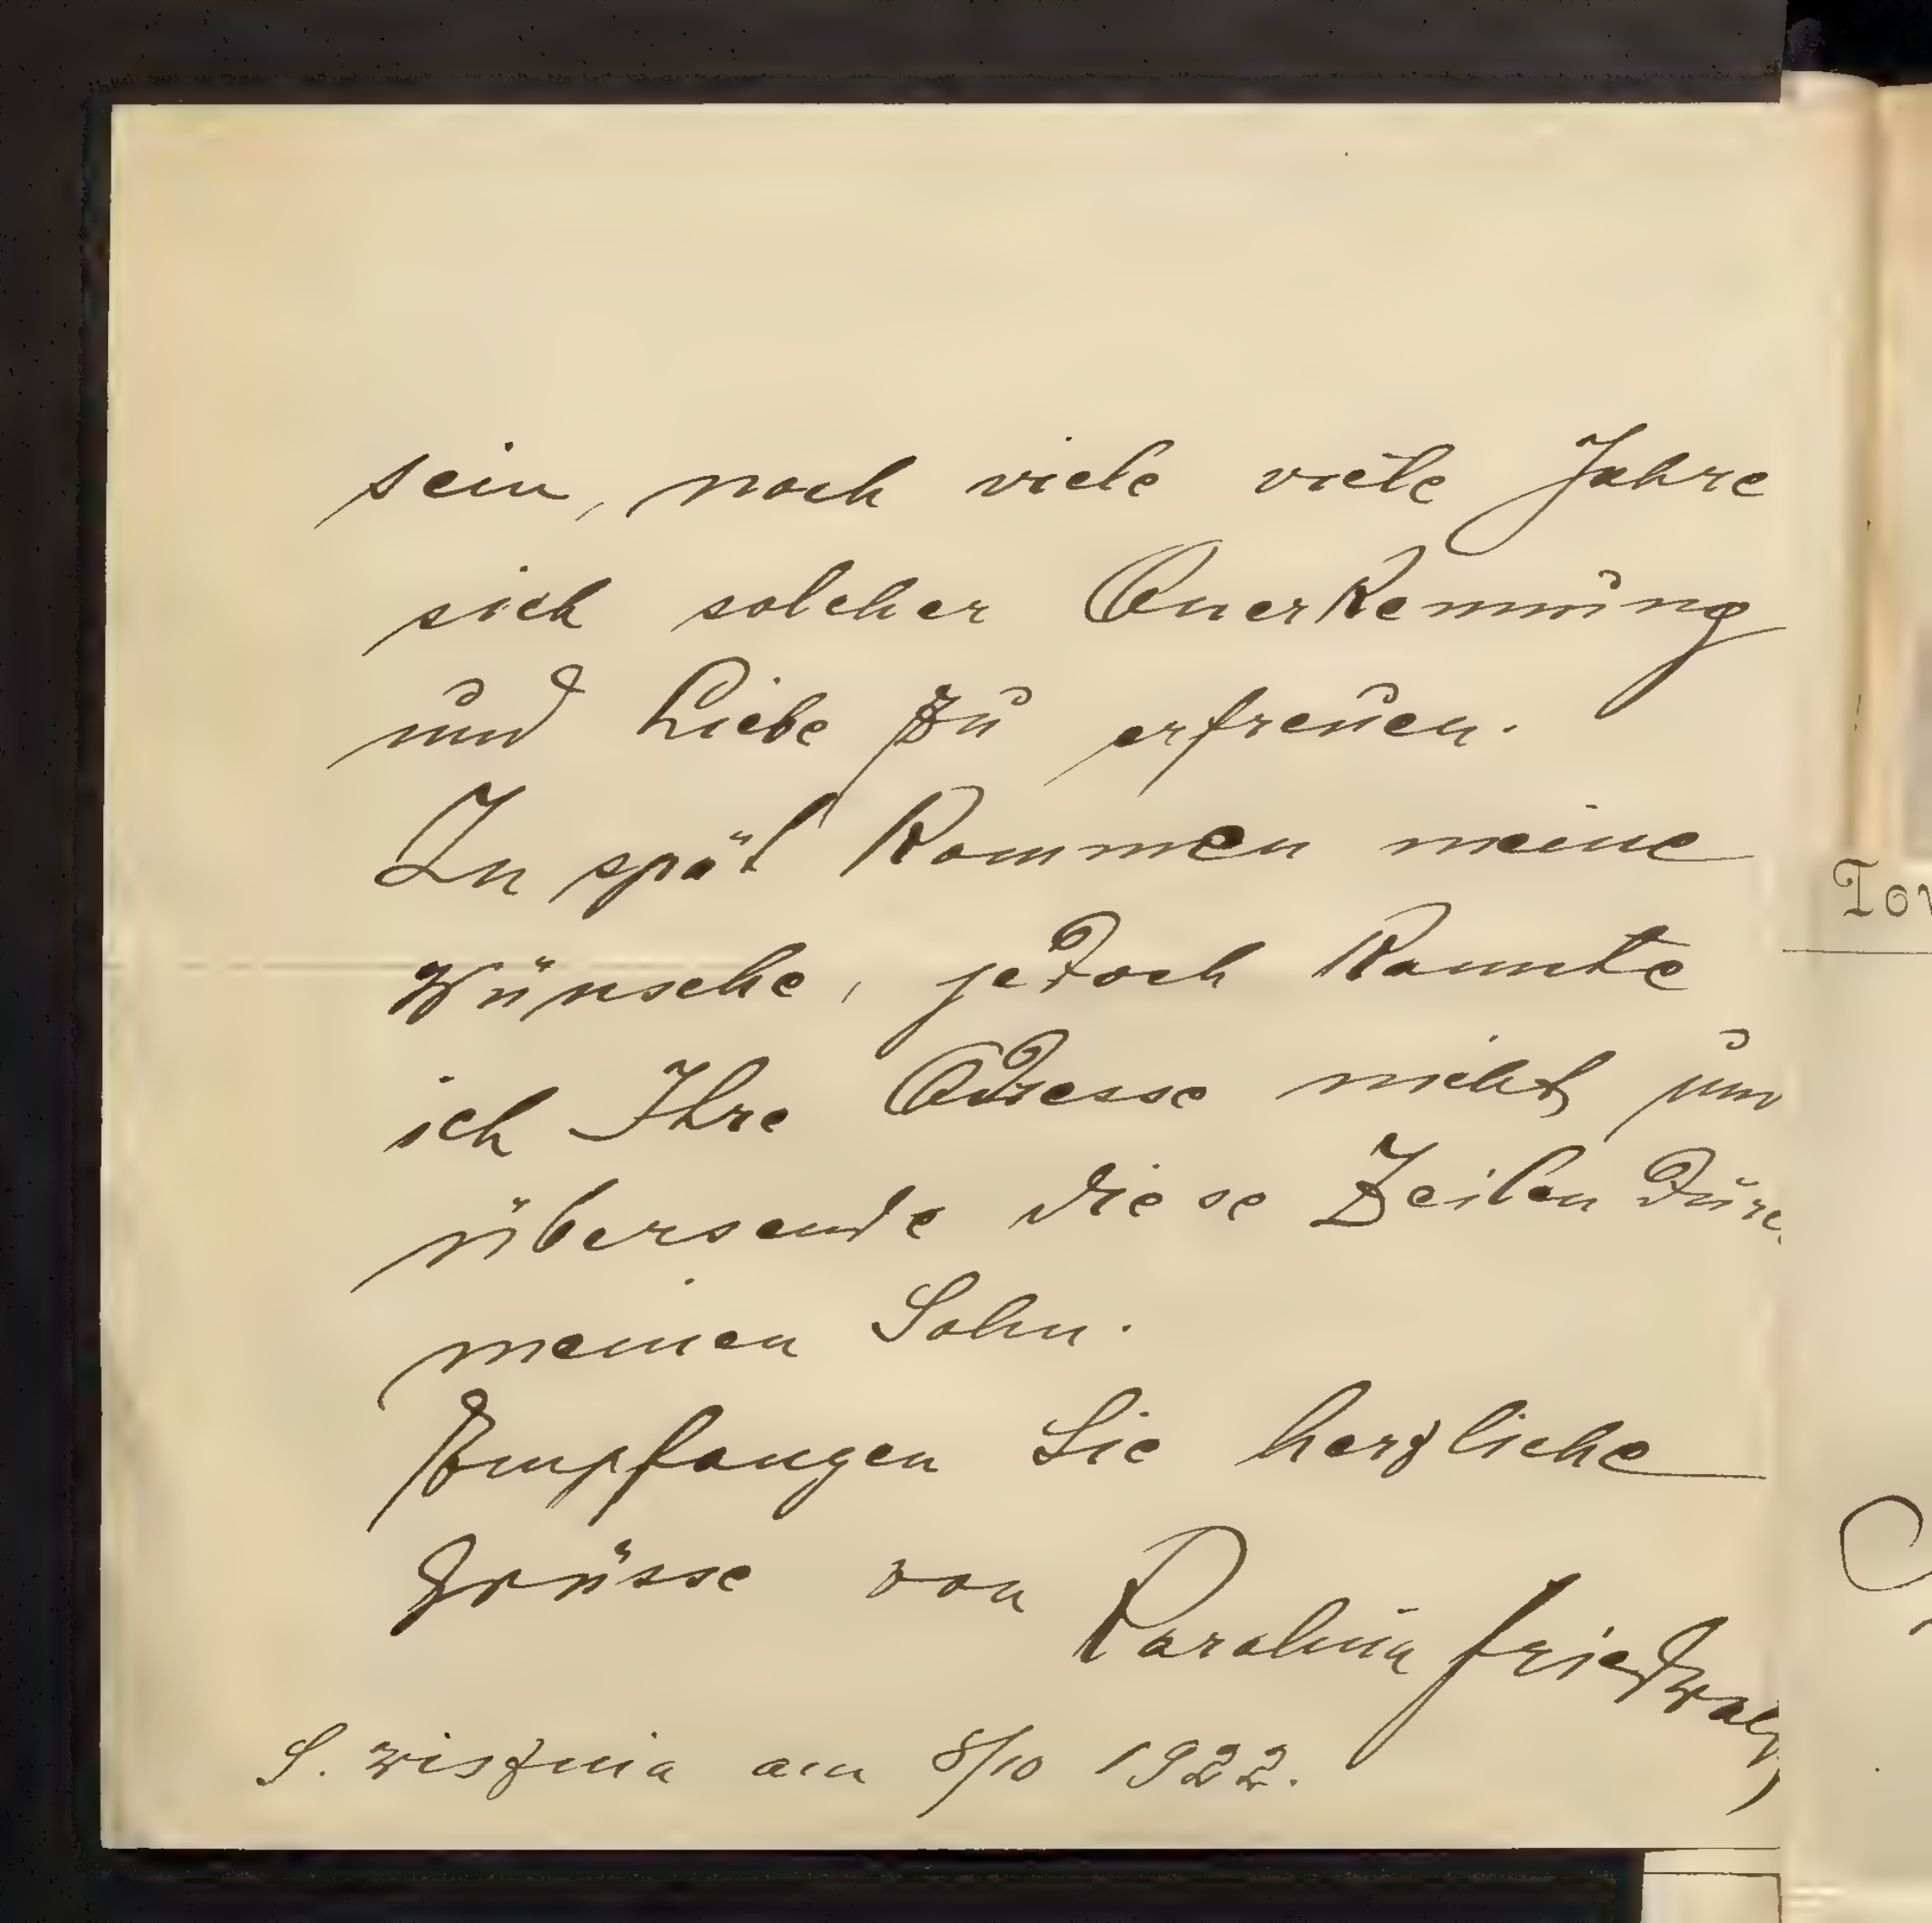 sein, noch viele viele Jahre
sich solcher Anerkennung
und Liebe zu erfreuen.
Zu spät kommen meine
Wünsche, jedoch kannte
ich Ihre Adresse nicht un
übersende diese Zeilen dur
meinen Sohn.
Empfangen Sie herzliche
Grüsse von Karolina Friedwal
S. Wisznia am 8/10 1922.
Tov